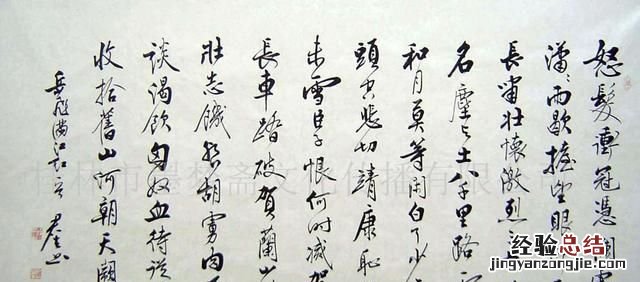 怒髮衝冠憑闌
瀟〻雨歇擡望眼
長嘯壯懷激烈三
名塵与土八千里路
和月莫等閑白了少
頭空悲切靖康恥
未雪臣子恨何时滅駕
長車踏破賀蘭山
壯志饑餐胡虜肉
談渴飲匈奴血待從
收拾舊山河朝天闕
岳飛滿江紅
桂林市墨梦斋文化传播有限公
经验总结
jingyanzongjie.com